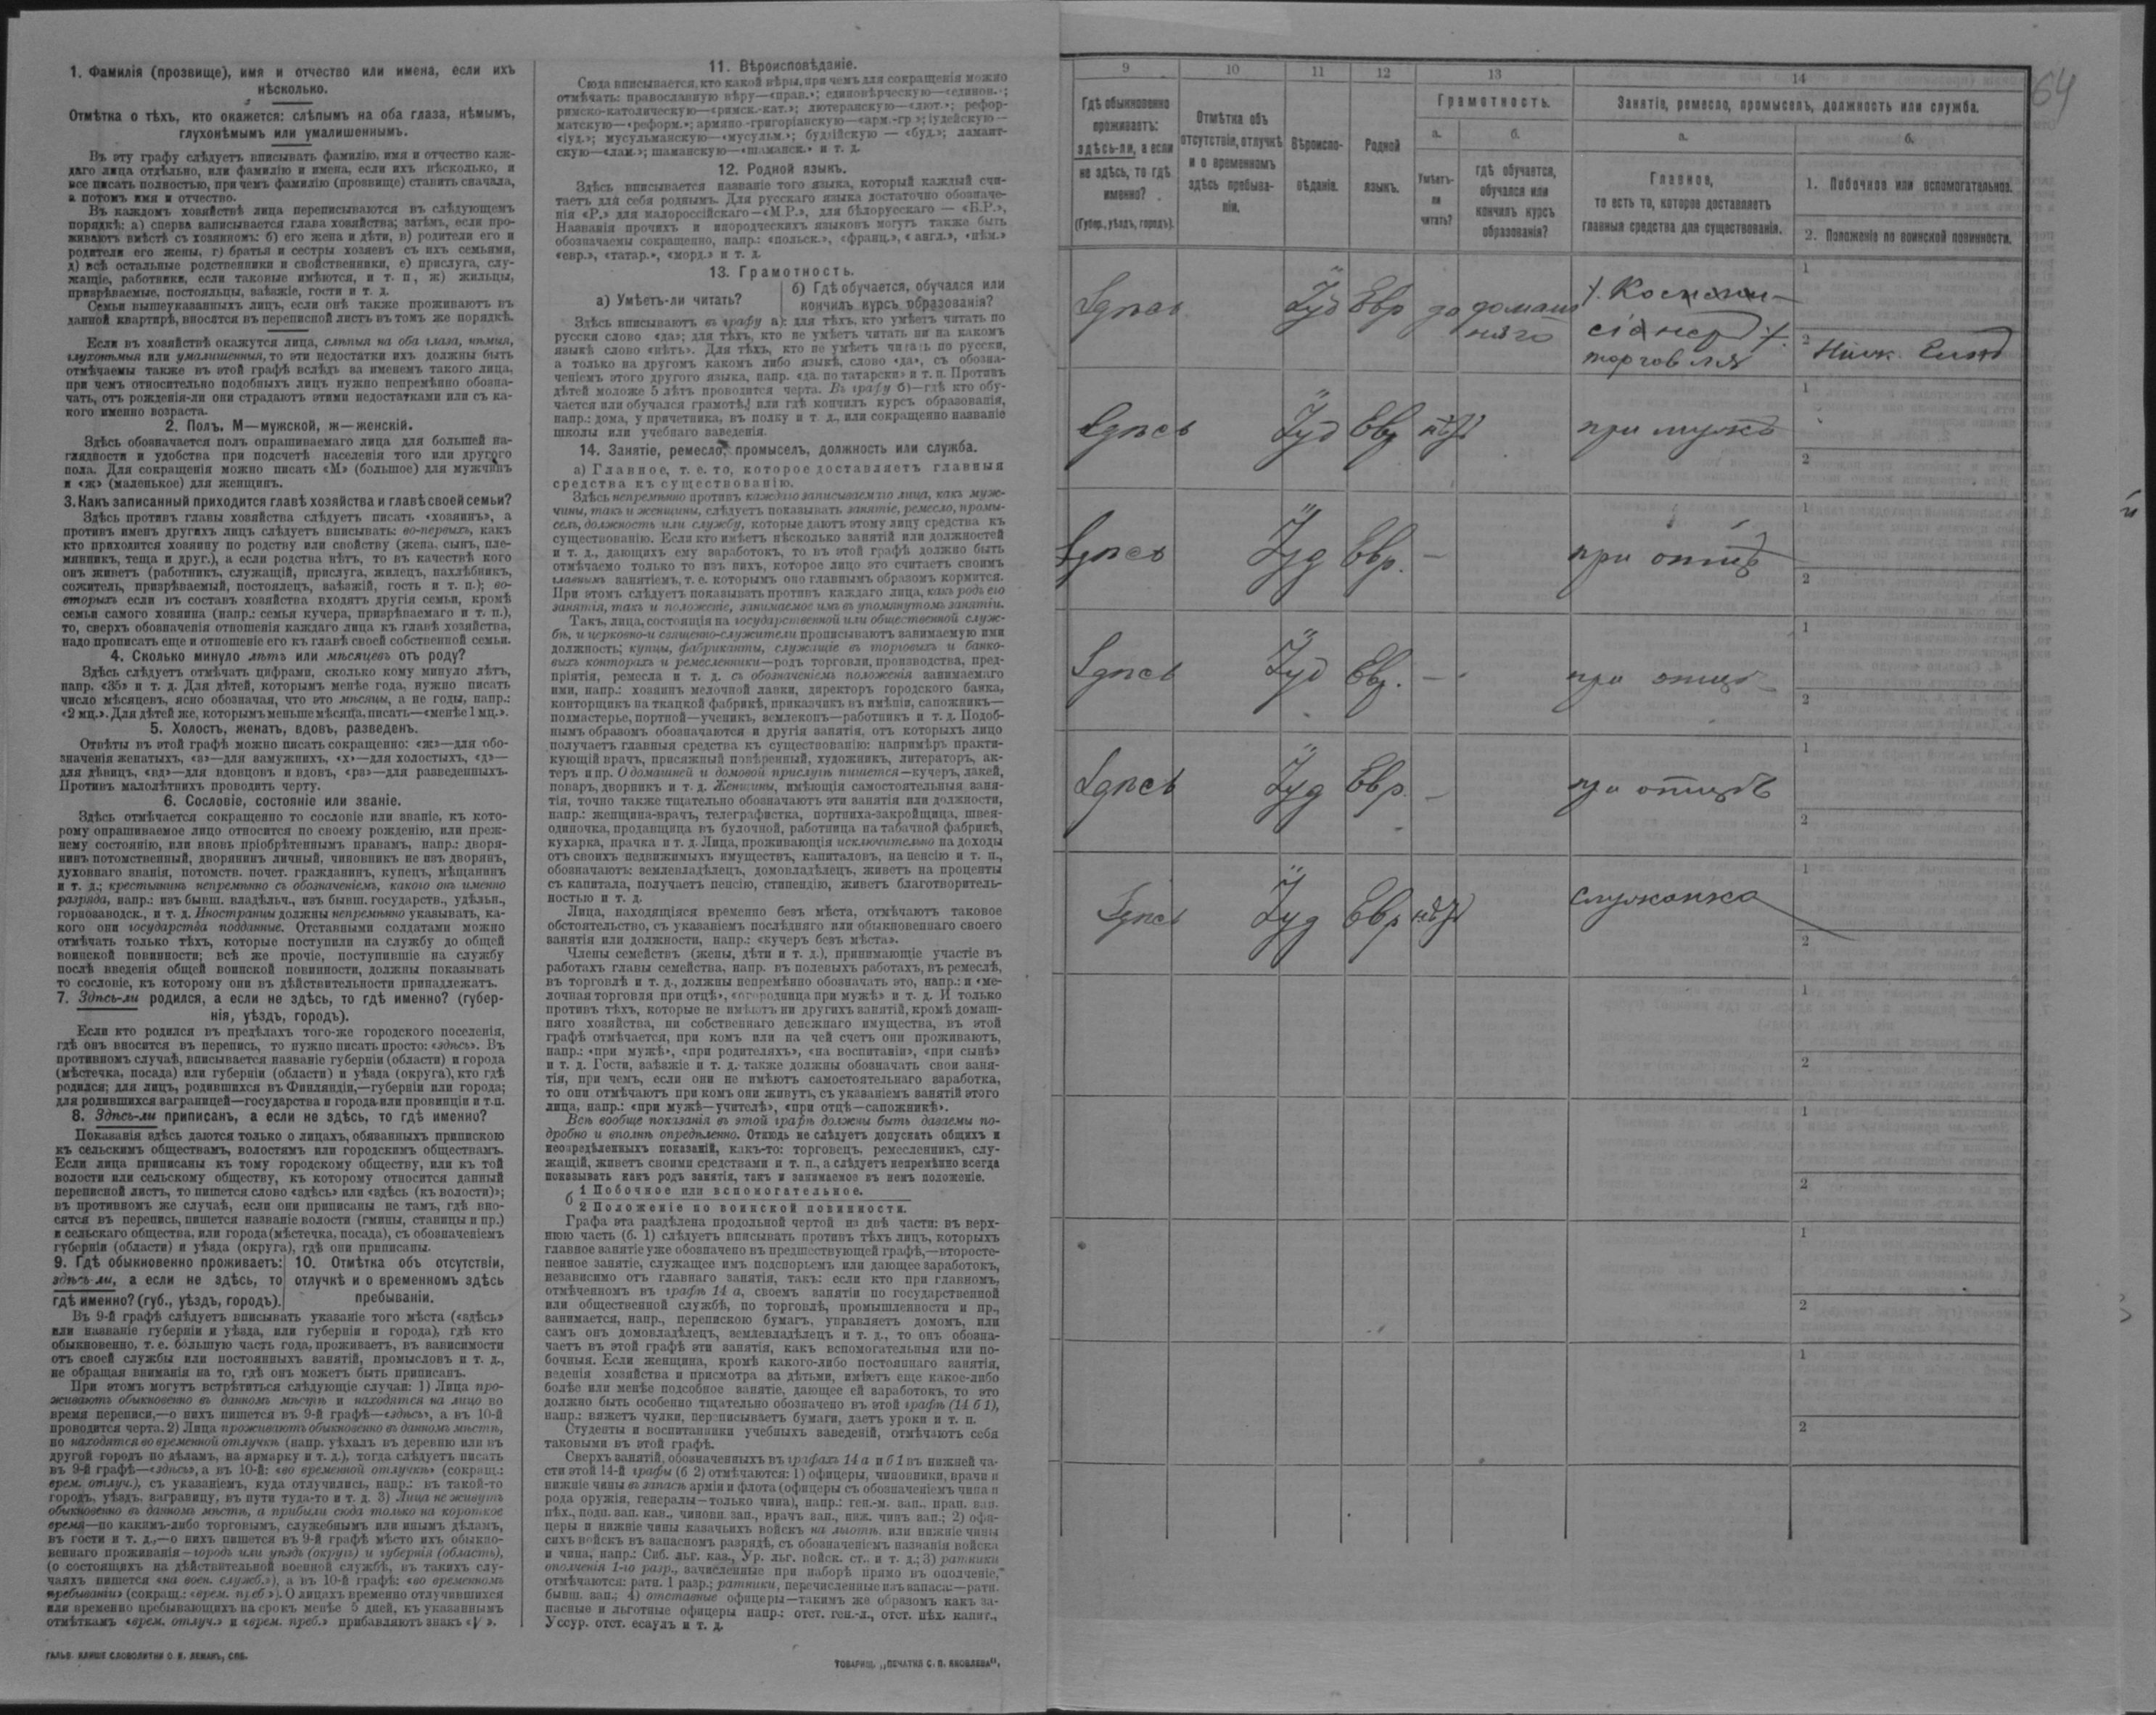 1. Фамилія (прозвище), имя и отчество или имена, если ихъ
нѣсколько.
Отмѣтка о тѣхъ, кто окажется: слѣпымъ на оба глаза, нѣмымъ,
глухонѣмымъ или умалишеннымъ.
Въ эту графу слѣдуетъ вписывать фамилію, имя и отчество каж-
даго лица отдѣльно, или фамилію и имена, если ихъ нѣсколько, и
все писать полностью, при чемъ фамилію (прозвище) ставить сначала,
а потомъ имя и отчество.
Въ каждомъ хозяйствѣ лица переписываются въ слѣдующемъ
порядкѣ: а) сперва записывается глава хозяйства; затѣмъ, если про-
живаютъ вмѣстѣ съ хозяиномъ: б) его жена и дѣти, в) родители его и
родители его жены, г) братья и сестры хозяевъ съ ихъ семьями,
д) всѣ остальные родственники и свойственники, е) прислуга, слу-
жащіе, работники, если таковые имѣются, и т. п, ж) жильцы,
призрѣваемые, постояльцы, заѣзжіе, гости и т. д.
Семьи вышеуказанныхъ лицъ, если онѣ также проживаютъ въ
данной квартирѣ, вносятся въ переписной листъ въ томъ же порядкѣ.
Если въ хозяйствѣ окажутся лица, слѣпыя на оба глаза, нѣмыя,
глухонѣмыя или умалишенныя, то эти недостатки ихъ должны быть
отмѣчаемы также въ этой графѣ вслѣдъ за именемъ такого лица,
при чемъ относительно подобныхъ лицъ нужно непремѣнно обозна-
чать, отъ рожденія-ли они страдаютъ этими недостатками или съ ка-
кого именно возраста.
2. Полъ. М—мужской, ж—женскій.
Здѣсь обозначается полъ опрашиваемаго лица для большей на-
глядности и удобства при подсчетѣ населенія того или другого
пола. Для сокращенія можно писать «М» (большое) для мужчинъ
и «ж» (маленькое) для женщинъ.
3. Какъ записанный приходится главѣ хозяйства и главѣ своей семьи?
Здѣсь противъ главы хозяйства слѣдуетъ писать «хозяинъ», а
противъ именъ другихъ лицъ слѣдуетъ вписывать: во-первыхъ, какъ
кто приходится хозяину по родству или свойству (жена, сынъ, пле-
мянникъ, теща и друг.), а если родства нѣтъ, то въ качествѣ кого
онъ живетъ (работникъ, служащій, прислуга, жилецъ, нахлѣбникъ,
сожитель, призрѣваемый, постоялецъ, заѣзжій, гость и т. п.); во-
вторыхъ если въ составъ хозяйства входятъ другія семьи, кромѣ
семьи самого хозяина (напр.: семья кучера, призрѣваемаго и т. п.),
то, сверхъ обозначенія отношенія каждаго лица къ главѣ хозяйства,
надо прописать еще и отношеніе его къ главѣ своей собственной семьи.
4. Сколько минуло лѣтъ или мѣсяцевъ отъ роду?
Здѣсь слѣдуетъ отмѣчать цифрами, сколько кому минуло лѣтъ,
напр. «35» и т. д. Для дѣтей, которымъ менѣе года, нужно писать
число мѣсяцевъ, ясно обозначая, что это мѣсяцы, а не годы, напр.:
«2 мц.». Для дѣтей же, которымъ меньше мѣсяца, писать—«менѣе 1 мц.».
5. Холостъ, женатъ, вдовъ, разведенъ.
Отвѣты въ этой графѣ можно писать сокращенно: «ж»—для обо-
значенія женатыхъ, «з»—для замужнихъ, «х»—для холостыхъ, «д»—
для дѣвицъ, «вд»—для вдовцовъ и вдовъ, «рз»—для разведенныхъ.
Противъ малолѣтнихъ проводить черту.
6. Сословіе, состояніе или званіе.
Здѣсь отмѣчается сокращенно то сословіе или званіе, къ кото-
рому опрашиваемое лицо относится по своему рожденію, или преж-
нему состоянію, или вновь пріобрѣтеннымъ правамъ, напр.: дворя-
нинъ потомственный, дворянинъ личный, чиновникъ не изъ дворянъ,
духовнаго званія, потомств. почет. гражданинъ, купецъ, мѣщанинъ
и т. д.; крестьянинъ непремѣнно съ обозначеніемъ, какого онъ именно
разряда, напр.: изъ бывш. владѣльч., изъ бывш. государств., удѣльн.,
горнозаводск., и т. д. Иностранцы должны непремѣнно указывать, ка-
кого они государства подданные. Отставными солдатами можно
отмѣчать только тѣхъ, которые поступили на службу до общей
воинской повинности; всѣ же прочіе, поступившіе на службу
послѣ введенія общей воинской повинности, должны показывать
то сословіе, къ которому они въ дѣйствительности принадлежатъ.
7. Здѣсь-ли родился, а если не здѣсь, то гдѣ именно? (губер-
нія, уѣздъ, городъ).
Если кто родился въ предѣлахъ того-же городского поселенія,
гдѣ онъ вносится въ перепись, то нужно писать просто: «здѣсь». Въ
противномъ случаѣ, вписывается названіе губерніи (области) и города
(мѣстечка, посада) или губерніи (области) и уѣзда (округа), кто гдѣ
родился; для лицъ, родившихся въ Финляндіи,—губерніи или города;
для родившихся заграницей—государства и города или провинціи и т.п.
8. Здѣсь-ли приписанъ, а если не здѣсь, то гдѣ именно?
Показанія здѣсь даются только о лицахъ, обязанныхъ припискою
къ сельскимъ обществамъ, волостямъ или городскимъ обществамъ.
Если лица приписаны къ тому городскому обществу, или къ той
волости или сельскому обществу, къ которому относится данный
переписной листъ, то пишется слово «здѣсь» или «здѣсь (къ волости)»;
въ противномъ же случаѣ, если они приписаны не тамъ, гдѣ вно-
сятся въ перепись, пишется названіе волости (гмины, станицы и пр.)
и сельскаго общества, или города (мѣстечка, посада), съ обозначеніемъ
губерніи (области) и уѣзда (округа), гдѣ они приписаны.
9. Гдѣ обыкновенно проживаетъ:
здѣсь-ли, а если не здѣсь, то
гдѣ именно? (губ., уѣздъ, городъ).
10. Отмѣтка объ отсутствіи,
отлучкѣ и о временномъ здѣсь
пребываніи.
Въ 9-й графѣ слѣдуетъ вписывать указаніе того мѣста («здѣсь»
или названіе губерніи и уѣзда, или губерніи и города), гдѣ кто
обыкновенно, т. е. большую часть года, проживаетъ, въ зависимости
отъ своей службы или постоянныхъ занятій, промысловъ и т. д.,
не обращая вниманія на то, гдѣ онъ можетъ быть приписанъ.
При этомъ могутъ встрѣтиться слѣдующіе случаи: 1) Лица про-
живаютъ обыкновенно въ данномъ мѣстѣ и находятся на лицо во
время переписи,—о нихъ пишется въ 9-й графѣ—«здѣсь», а въ 10-й
проводится черта. 2) Лица проживаютъ обыкновенно въ данномъ мѣстѣ,
но находятся во временной отлучкѣ (напр. уѣхалъ въ деревню или въ
другой городъ по дѣламъ, на ярмарку и т. д.), тогда слѣдуетъ писать
въ 9-й графѣ—«здѣсь», а въ 10-й: «во временной отлучкѣ» (сокращ.:
врем. отлуч.), съ указаніемъ, куда отлучились, напр.: въ такой-то
городъ, уѣздъ, заграницу, въ пути туда-то и т. д. 3) Лица не живутъ
обыкновенно въ данномъ мѣстѣ, а прибыли сюда только на короткое
время—по какимъ-либо торговымъ, служебнымъ или инымъ дѣламъ,
въ гости и т. д.,—о нихъ пишется въ 9-й графѣ мѣсто ихъ обыкно-
веннаго проживанія—городъ или уѣздъ (округъ) и губернія (область),
(о состоящихъ на дѣйствительной военной службѣ, въ такихъ слу-
чаяхъ пишется «на воен. служб.»), а въ 10-й графѣ: «во временномъ
пребываніи» (сокращ.: «врем. преб.»). О лицахъ временно отлучившихся
или временно пребывающихъ на срокъ менѣе 5 дней, къ указаннымъ
отмѣткамъ «врем. отлуч.» и «врем. преб.» прибавляютъ знакъ «V».
ГАЛЬВ. КЛИШЕ СЛОВОЛИТНИ О. И. ЛЕМАНЪ, СПБ.
11. Вѣроисповѣданіе.
Сюда вписывается, кто какой вѣры, при чемъ для сокращенія можно
отмѣчать: православную вѣру—«прав.»; единовѣрческую—«единов.»;
римско-католическую—«римск.-кат.»; лютеранскую—«лют.»; рефор-
матскую—«реформ.»; армяно-григоріанскую—«арм.-гр.»; іудейскую—
«іуд.»; мусульманскую—«мусульм.»; буддійскую — «буд.»; ламаит-
скую—«лам.»; шаманскую—«шаманск.» и т. д.
12. Родной языкъ.
Здѣсь вписывается названіе того языка, который каждый счи-
таетъ для себя роднымъ. Для русскаго языка достаточно обозначе-
нія «Р.» для малороссійскаго—«М.Р.», для бѣлорусскаго — «Б.Р.».
Названія прочихъ и инородческихъ языковъ могутъ также быть
обозначаемы сокращенно, напр.: «польск.», «франц.», «англ.», «нѣм.»
«евр.», «татар.», «морд.» и т. д.
13. Грамотность.
а) Умѣетъ-ли читать?
б) Гдѣ обучается, обучался или
кончилъ курсъ образованія?
Здѣсь вписываютъ въ графу а): для тѣхъ, кто умѣетъ читать по
русски слово «да»; для тѣхъ, кто не умѣетъ читать ни на какомъ
языкѣ слово «нѣтъ». Для тѣхъ, кто не умѣетъ читать по русски,
а только на другомъ какомъ либо языкѣ, слово «да», съ обозна-
ченіемъ этого другого языка, напр. «да. по татарски» и т. п. Противъ
дѣтей моложе 5 лѣтъ проводится черта. Въ графу б)—гдѣ кто обу-
чается или обучался грамотѣ, или гдѣ кончилъ курсъ образованія,
напр.: дома, у причетника, въ полку и т. д., или сокращенно названіе
школы или учебнаго заведенія.
14. Занятіе, ремесло, промыселъ, должность или служба.
а) Главное, т. е. то, которое доставляетъ главныя
средства къ существованію.
Здѣсь непремѣнно противъ каждаго записываемаго лица, какъ муж-
чины, такъ и женщины, слѣдуетъ показывать занятіе, ремесло, промы-
селъ, должность или службу, которые даютъ этому лицу средства къ
существованію. Если кто имѣетъ нѣсколько занятій или должностей
и т. д., дающихъ ему заработокъ, то въ этой графѣ должно быть
отмѣчаемо только то изъ нихъ, которое лицо это считаетъ своимъ
главнымъ занятіемъ, т. е. которымъ оно главнымъ образомъ кормится.
При этомъ слѣдуетъ показывать противъ каждаго лица, какъ родъ его
занятія, такъ и положеніе, занимаемое имъ въ упомянутомъ занятіи.
Такъ, лица, состоящія на государственной или общественной служ-
бѣ, и церковно-и священно-служители прописываютъ занимаемую ими
должность; купцы, фабриканты, служащіе въ торговыхъ и банко-
выхъ конторахъ и ремесленники—родъ торговли, производства, пред-
пріятія, ремесла и т. д. съ обозначеніемъ положенія занимаемаго
ими, напр.: хозяинъ мелочной лавки, директоръ городского банка,
конторщикъ на ткацкой фабрикѣ, приказчикъ въ имѣніи, сапожникъ—
подмастерье, портной—ученикъ, землекопъ—работникъ и т. д. Подоб-
нымъ образомъ обозначаются и другія занятія, отъ которыхъ лицо
получаетъ главныя средства къ существованію: напримѣръ практи-
кующій врачъ, присяжный повѣренный, художникъ, литераторъ, ак-
теръ и пр. О домашней и домовой прислугѣ пишется—кучеръ, лакей,
поваръ, дворникъ и т. д. Женщины, имѣющія самостоятельныя заня-
тія, точно также тщательно обозначаютъ эти занятія или должности,
напр.: женщина-врачъ, телеграфистка, портниха-закройщица, швея-
одиночка, продавщица въ булочной, работница на табачной фабрикѣ,
кухарка, прачка и т. д. Лица, проживающія исключительно на доходы
отъ своихъ недвижимыхъ имуществъ, капиталовъ, на пенсію и т. п.,
обозначаютъ: землевладѣлецъ, домовладѣлецъ, живетъ на проценты
съ капитала, получаетъ пенсію, стипендію, живетъ благотворитель-
ностью и т. д.
Лица, находящіяся временно безъ мѣста, отмѣчаютъ таковое
обстоятельство, съ указаніемъ послѣдняго или обыкновеннаго своего
занятія или должности, напр.: «кучеръ безъ мѣста».
Члены семействъ (жены, дѣти и т. д.), принимающіе участіе въ
работахъ главы семейства, напр. въ полевыхъ работахъ, въ ремеслѣ,
въ торговлѣ и т. д., должны непремѣнно обозначать это, напр.: и «ме-
лочная торговля при отцѣ», «огородница при мужѣ» и т. д. И только
противъ тѣхъ, которые не имѣютъ ни другихъ занятій, кромѣ домаш-
няго хозяйства, ни собственнаго денежнаго имущества, въ этой
графѣ отмѣчается, при комъ или на чей счетъ они проживаютъ,
напр.: «при мужѣ», «при родителяхъ», «на воспитаніи», «при сынѣ»
и т. д. Гости, заѣзжіе и т. д. также должны обозначать свои заня-
тія, при чемъ, если они не имѣютъ самостоятельнаго заработка,
то они отмѣчаютъ при комъ они живутъ, съ указаніемъ занятій этого
лица, напр.: «при мужѣ—учителѣ», «при отцѣ—сапожникѣ».
Всѣ вообще показанія въ этой графѣ должны быть даваемы по-
дробно и вполнѣ опредѣленно. Отнюдь не слѣдуетъ допускать общихъ и
неопредѣленныхъ показаній, какъ-то: торговецъ, ремесленникъ, слу-
жащій, живетъ своими средствами и т. п., а слѣдуетъ непремѣнно всегда
показывать какъ родъ занятія, такъ и занимаемое въ немъ положеніе.
б 1 Побочное или вспомогательное.
2 Положеніе по воинской повинности.
Графа эта раздѣлена продольной чертой на двѣ части: въ верх-
нюю часть (б. 1) слѣдуетъ вписывать противъ тѣхъ лицъ, которыхъ
главное занятіе уже обозначено въ предшествующей графѣ,—второсте-
пенное занятіе, служащее имъ подспорьемъ или дающее заработокъ,
независимо отъ главнаго занятія, такъ: если кто при главномъ,
отмѣченномъ въ графѣ 14 а, своемъ занятіи по государственной
или общественной службѣ, по торговлѣ, промышленности и пр.,
занимается, напр., перепискою бумагъ, управляетъ домомъ, или
самъ онъ домовладѣлецъ, землевладѣлецъ и т. д., то онъ обозна-
чаетъ въ этой графѣ эти занятія, какъ вспомогательныя или по-
бочныя. Если женщина, кромѣ какого-либо постояннаго занятія,
веденія хозяйства и присмотра за дѣтьми, имѣетъ еще какое-либо
болѣе или менѣе подсобное занятіе, дающее ей заработокъ, то это
должно быть особенно тщательно обозначено въ этой графѣ (14 б 1),
напр.: вяжетъ чулки, переписываетъ бумаги, даетъ уроки и т. п.
Студенты и воспитанники учебныхъ заведеній, отмѣчаютъ себя
таковыми въ этой графѣ.
Сверхъ занятій, обозначенныхъ въ графахъ 14 а и б 1 въ нижней ча-
сти этой 14-й графы (б 2) отмѣчаются: 1) офицеры, чиновники, врачи и
нижніе чины въ запасѣ арміи и флота (офицеры съ обозначеніемъ чина и
рода оружія, генералы—только чина), напр.: ген.-м. зап., прап. зап.
пѣх., подп. зап. кав., чиновн. зап., врачъ зап., ниж. чинъ зап.; 2) офи-
церы и нижніе чины казачьихъ войскъ на льготѣ. или нижніе чины
сихъ войскъ въ запасномъ разрядѣ, съ обозначеніемъ названія войска
и чина, напр.: Сиб. льг. каз., Ур. льг. войск. ст. и т. д.; 3) ратники
ополченія 1-го разр., зачисленные при наборѣ прямо въ ополченіе,
отмѣчаются: ратн. 1 разр.; ратники, перечисленные изъ запаса:—ратн.
бывш. зап.; 4) отставные офицеры—такимъ же образомъ какъ за-
пасные и льготные офицеры напр.: отст. ген.-л., отст. пѣх. капит.,
Уссур. отст. есаулъ и т. д.
ТОВАРИЩ. „ПЕЧАТНЯ С. П. ЯКОВЛЕВА".
64
9 10 11 12 13 14
Гдѣ обыкновенно
проживаетъ:
здѣсь-ли, а если
не здѣсь, то гдѣ
именно?
(Губер., уѣздъ, городъ).
Отмѣтка объ
отсутствіи, отлучкѣ
и о временномъ
здѣсь пребыва-
ніи.
Вѣроиспо-
вѣданіе.
Родной
языкъ.
Грамотность.
а.
Умѣетъ-
ли
читать?
б.
гдѣ обучается,
обучался или
кончилъ курсъ
образованія?
Занятіе, ремесло, промыселъ, должность или служба.
а.
Главное,
то есть то, которое доставляетъ
главныя средства для существованія.
б.
1. Побочное или вспомогательное.
2. Положеніе по воинской повинности.
Здѣсь Іуд Евр да домаш
няго
торговля
1
2
Здѣсь Іуд Евр нѣтъ при мужѣ
1
2
Здѣсь Іуд Евр. — при отцѣ
1
2
Здѣсь Іуд Евр. — при отцѣ
1
2
Здѣсь Іуд Евр. — при отцѣ
1
2
Здѣсь Іуд Евр нѣтъ служанка
1
2
1
2
1
2
1
2
1
2